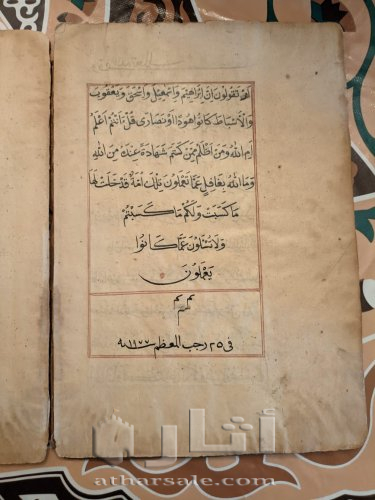 اَمْ تَقُولُونَ اِنَّ اِبْرٰهِيمَ وَاِسْمٰعِيلَ وَاِسْحٰقَ وَيَعْقُوبَ
وَالْاَسْبَاطَ كَانُوا هُودًا اَوْ نَصَارٰى قُلْ ءَاَنْتُمْ اَعْلَمُ
اَمِ اللهُ وَمَنْ اَظْلَمُ مِمَّنْ كَتَمَ شَهَادَةً عِنْدَهُ مِنَ اللهِ
وَمَا اللهُ بِغَافِلٍ عَمَّا تَعْمَلُونَ تِلْكَ اُمَّةٌ قَدْ خَلَتْ لَهَا
مَا كَسَبَتْ وَلَكُمْ مَا كَسَبْتُمْ
وَلَا تُسْئَلُونَ عَمَّا كَانُوا
يَعْمَلُونَ
فى ٢٥ رجب المعظم سنه ١١٧٧
أثارة
atharsale.com